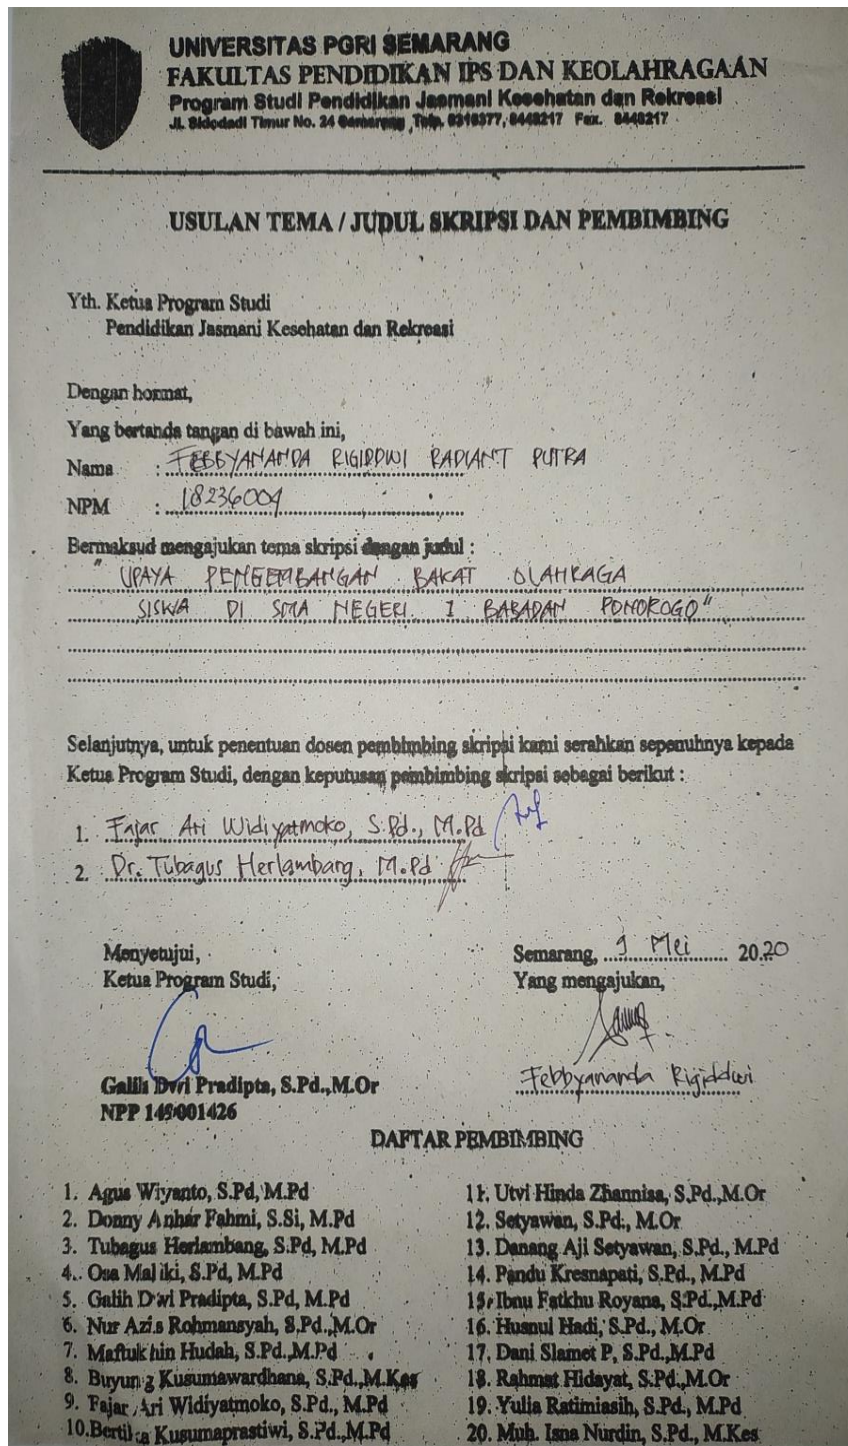 UNIVERSITAS PGRI SEMARANG
FAKULTAS PENDIDIKAN IPS DAN KEOLAHRAGAAN
Program Studi Pendidikan Jasmani Kesehatan dan Rekreasi
JL. Sidodadi Timur No. 24 Semarang, Telp. 8316377, 8448217 Fax. 8448217
USULAN TEMA / JUDUL SKRIPSI DAN PEMBIMBING
Yth. Ketua Program Studi
Pendidikan Jasmani Kesehatan dan Rekreasi
Dengan hormat,
Yang bertanda tangan di bawah ini,
Nama : FEBBYANANDA RIGIDDWI RADIANT PUTRA
NPM : 18236009
Bermaksud mengajukan tema skripsi dengan judul :
" UPAYA PENGEMBANGAN BAKAT OLAHRAGA
SISWA DI SMA NEGERI 1 BABADAN PONOROGO"
Selanjutnya, untuk penentuan dosen pembimbing skripsi kami serahkan sepenuhnya kepada
Ketua Program Studi, dengan keputusan pembimbing skripsi sebagai berikut :
1. Fajar Ari Widiyatmoko, S.Pd., M.Pd
2. Dr. Tubagus Herlambang, M.Pd
Menyetujui,
Ketua Program Studi,
Semarang, 9 Mei 2020
Yang mengajukan,
Galih Dwi Pradipta, S.Pd.,M.Or
NPP 149001426
Febbyananda Rigiddwi
DAFTAR PEMBIMBING
1. Agus Wiyanto, S.Pd, M.Pd
2. Donny Anhar Fahmi, S.Si, M.Pd
3. Tubagus Herlambang, S.Pd, M.Pd
4. Osa Maliki, S.Pd, M.Pd
5. Galih Dwi Pradipta, S.Pd, M.Pd
6. Nur Azis Rohmansyah, S.Pd.,M.Or
7. Maftukhin Hudah, S.Pd.,M.Pd
8. Buyung Kusumawardhana, S.Pd.,M.Kes
9. Fajar Ari Widiyatmoko, S.Pd., M.Pd
10.Bertika Kusumaprastiwi, S.Pd.,M.Pd
11. Utvi Hinda Zhannisa, S.Pd.,M.Or
12. Setyawan, S.Pd., M.Or
13. Danang Aji Setyawan, S.Pd., M.Pd
14. Pandu Kresnapati, S.Pd., M.Pd
15. Ibnu Fatkhu Royana, S.Pd.,M.Pd
16. Husnul Hadi, S.Pd., M.Or
17. Dani Slamet P, S.Pd.,M.Pd
18. Rahmat Hidayat, S.Pd.,M.Or
19. Yulia Ratimiasih, S.Pd., M.Pd
20. Muh. Isna Nurdin, S.Pd., M.Kes